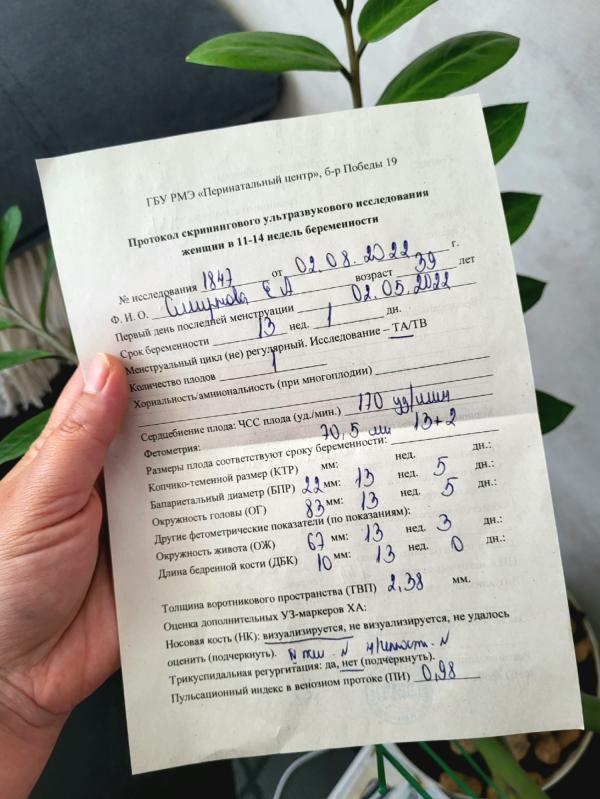 ГБУ РМЭ «Перинатальный центр», б-р Победы 19
Протокол скринингового ультразвукового исследования
женщин в 11-14 недель беременности
№ исследования 1847 от 02.08.2022 г.
Ф. И. О. Смирнова Е А возраст 39 лет
Первый день последней менструации 02.05.2022
Срок беременности 13 нед. 1 дн.
Менструальный цикл (не) регулярный. Исследование – ТА/ТВ
Количество плодов 1
Хориальность/амниональность (при многоплодии)
Сердцебиение плода: ЧСС плода (уд./мин.) 170 уд/мин
Фетометрия: 70,5 мм 13+2
Размеры плода соответствуют сроку беременности:
Копчико-теменной размер (КТР) мм: нед. дн.:
Бапариетальный диаметр (БПР) 22 мм: 13 нед. 5 дн.:
Окружность головы (ОГ) 83 мм: 13 нед. 5 дн.:
Другие фетометрические показатели (по показаниям):
Окружность живота (ОЖ) 67 мм: 13 нед. 3 дн.:
Длина бедренной кости (ДБК) 10 мм: 13 нед. 0 дн.:
Толщина воротникового пространства (ТВП) 2,38 мм.
Оценка дополнительных УЗ-маркеров ХА:
Носовая кость (НК): визуализируется, не визуализируется, не удалось
оценить (подчеркнуть). N N
Трикуспидальная регургитация: да, нет (подчеркнуть).
Пульсационный индекс в венозном протоке (ПИ) 0,98